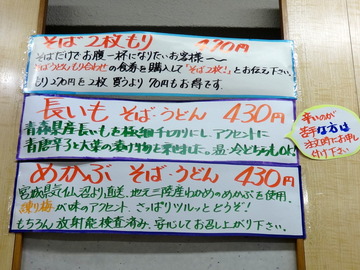 そば2枚もり 470円
そばだけでお腹一杯になりたいお客様〜〜
「そば・うどんもり合わせ」の食券を購入して「そば2枚!」とお伝え下さい。
もり270円を2枚買うより70円もお得です。
長いも そば・うどん 430円
青森県産長いもを極細千切りにし、アクセントに
青唐辛子と大葉の漬け物を乗せました。温・冷どちらもOK!
辛いのが
苦手な方は
注文時にお申し
付け下さい
めかぶ そば・うどん 430円
宮城県気仙沼より直送、地元三陸産わかめのめかぶを使用。
練り梅が味のアクセント、さっぱりツルッとどうぞ!
もちろん放射能検査済み、安心してお召し上がり下さい。